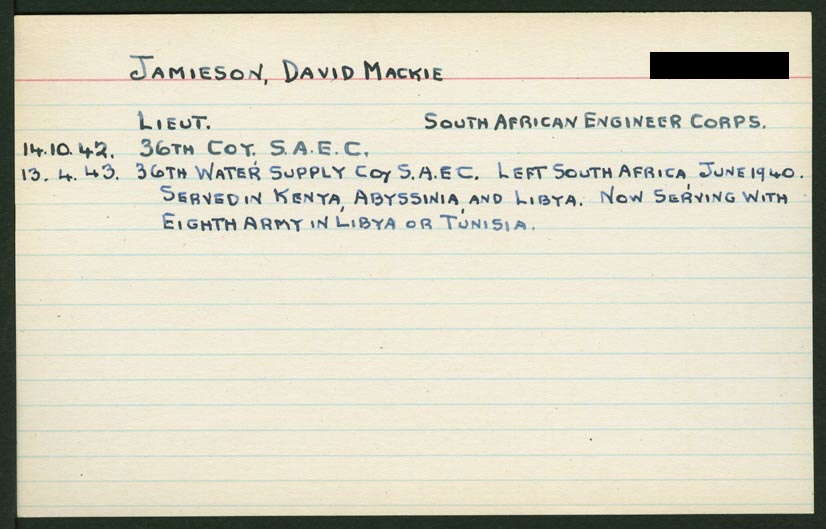 JAMIESON, DAVID MACKIE
LIEUT. SOUTH AFRICAN ENGINEER CORPS.
14.10.42. 36TH COY. S.A.E.C.
13.4.43. 36TH WATER SUPPLY COY S.A.E.C. LEFT SOUTH AFRICA JUNE 1940.
SERVED IN KENYA, ABYSSINIA, AND LIBYA. NOW SERVING WITH
EIGHTH ARMY IN LIBYA OR TUNISIA.